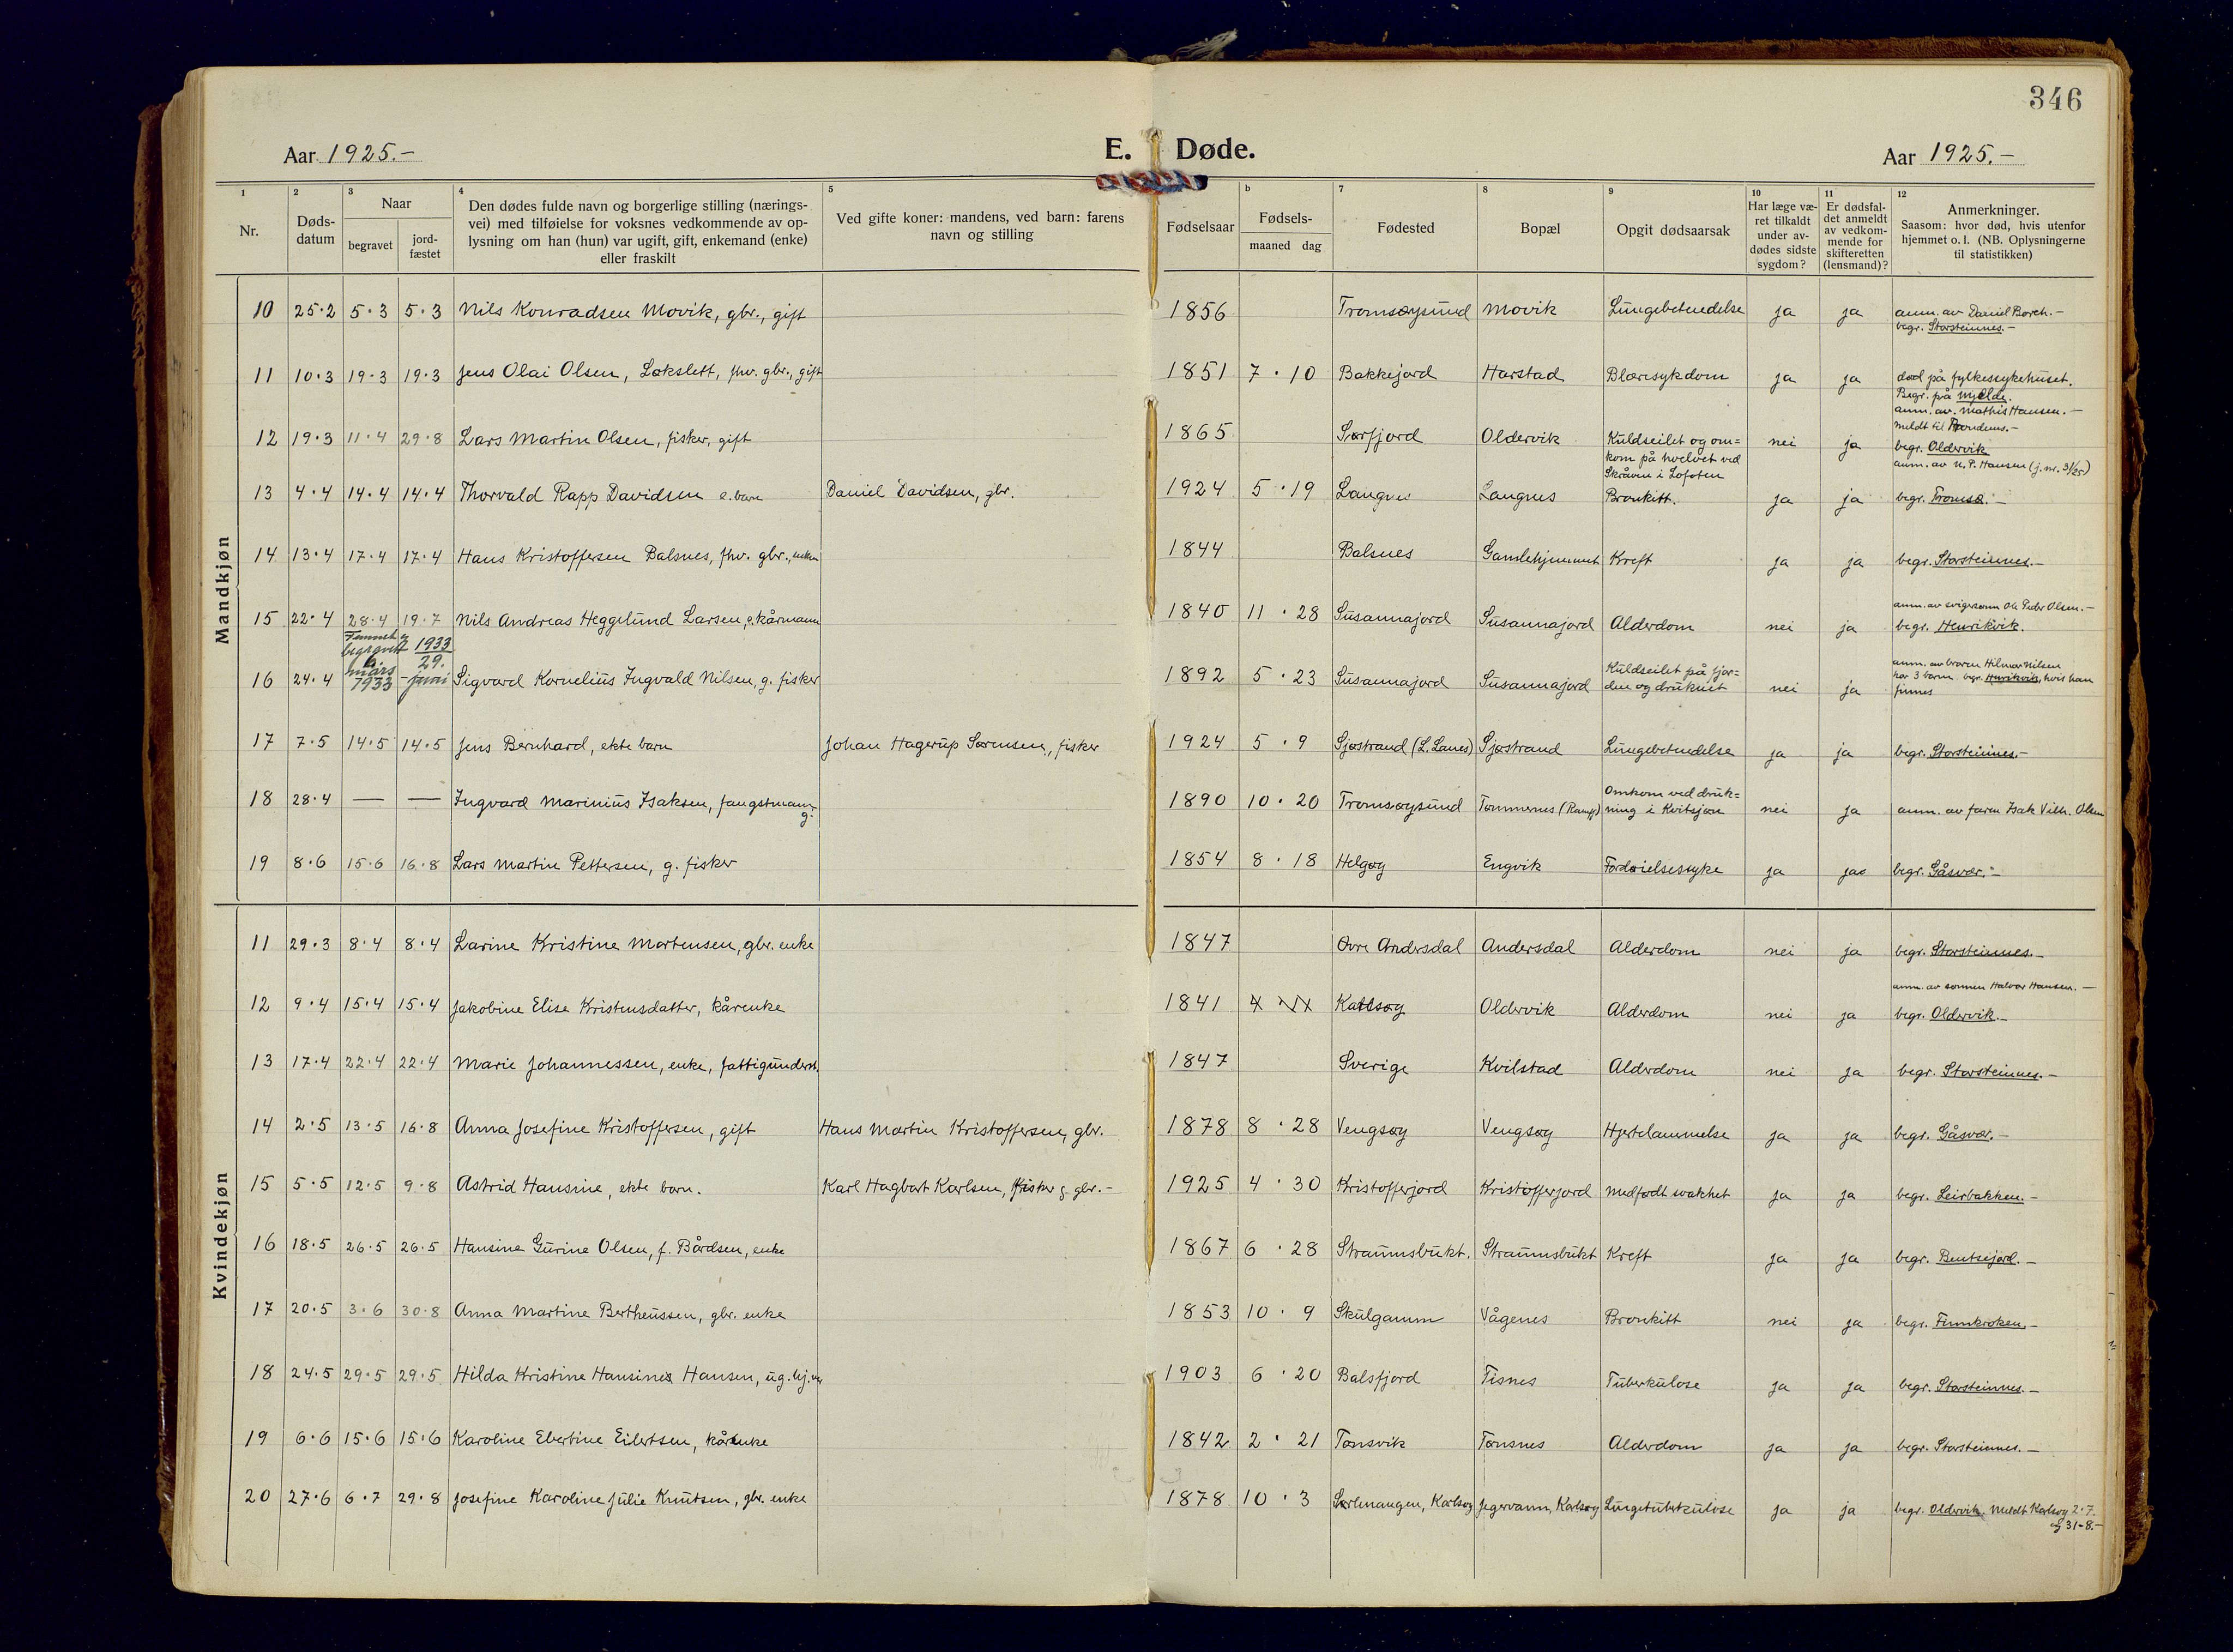 346
Aar 1925.-
E. Døde.
Aar 1925.-
1 Nr.
2 Døds-datum
3 Naar begravet jord-fæstet
4 Den dødes fulde navn og borgerlige stilling (nærings-vei) med tilføielse for voksnes vedkommende av op-lysning om han (hun) var ugift, gift, enkemand (enke) eller fraskilt
5 Ved gifte koner: mandens, ved barn: farens navn og stilling
Fødselsaar
b Fødsels- maaned dag
7 Fødested
8 Bopæl
9 Opgit dødsaarsak
10 Har læge væ-ret tilkaldt under av-dødes sidste sygdom?
11 Er dødsfal-det anmeldt av vedkom-mende for skifteretten (lensmand)?
12 Anmerkninger. Saasom: hvor død, hvis utenfor hjemmet o. l. (NB. Oplysningerne til statistikken)
Mandkjøn
10 25.2 5.3 5.3 Nils Konradsen Movik, gbr., gift 1856 Tromsøysund Movik Lungebetendelse ja ja anm. av Daniel Borch.- begr. Storsteinnes.-
11 10.3 19.3 19.3 Jens Olai Olsen, Løkslett, fhv. gbr., gift 1851 7.10 Bakkejord Harstad Blæresykdom ja ja død på fylkessykehuset. Begr. på Mjelde. anm. av. Mathis Hansen.-
12 19.3 11.4 29.8 Lars Martin Olsen, fisker, gift 1865 Sørfjord Oldervik Kuldseilet og om=kom på hvelvet ved Skråven i Lofoten nei ja meldt til Trondenes.- begr. Oldervik anm. av N. P. Hansen (j.nr. 3/25)
13 4.4 14.4 14.4 Thorvald Rapp Davidsen e. barn Daniel Davidsen, gbr. 1924 5.19 Langnes Langnes Bronkitt. ja ja begr. Tromsø.-
14 13.4 17.4 17.4 Hans Kristoffersen Balsnes, fhv. gbr., enkem 1844 Balsnes Gamlehjemmet Kreft ja ja begr. Storsteinnes.-
15 22.4 28.4 19.7 Nils Andreas Heggelund Larsen, g. kårmann 1840 11.28 Susannajord Susannajord Alderdom nei ja anm. av svigersønn Ole Peder Olsen.- begr. Henrikvik.
16 24.4 Funnet og begravet 6. mars 1933 1933 29. juni Sigvard Kornelius Ingvald Nilsen, g. fisker 1892 5.23 Susannajord Susannajord Kuldseilet på fjor=den og druknet nei ja anm. av broren Hilmar Nilsen har 3 barn begr. Henrikvik, hvis han finnes
17 7.5 14.5 14.5 Jens Bernhard, ekte barn Johan Hagerup Sørensen, fisker 1924 5.9 Sjøstrand (L. Lanes) Sjøstrand Lungebetendelse ja ja begr. Storsteinnes.-
18 28.4 — — Ingvard Marinius Isaksen, fangstmann g. 1890 10.20 Tromsøysund Tømmernes (Ramfj) Omkom ved druk=ning i Kvitsjøen nei ja anm. av faren Isak Vilh. Olsen
19 8.6 15.6 16.8 Lars Martin Pettersen, g. fisker 1854 8.18 Helgøy Engvik Fordøielsessyke ja ja begr. Gåsvær.-
Kvindekjøn
11 29.3 8.4 8.4 Larine Kristine Mortensen, gbr. enke 1847 Øvre Andersdal Andersdal Alderdom nei ja begr. Storsteinnes.-
12 9.4 15.4 15.4 Jakobine Elise Kristensdatter, kårenke 1841 Karlsøy Oldervik Alderdom nei ja anm. av sønnen Halvor Hansen.- begr. Oldervik.-
13 17.4 22.4 22.4 Marie Johannessen, enke, fattigunderst. 1847 Sverige Kvilstad Alderdom nei ja begr. Storsteinnes.-
14 2.5 13.5 16.8 Anna Josefine Kristoffersen, gift Hans Martin Kristoffersen, gbr. 1878 8.28 Vengsøy Vengsøy Hjertelammelse ja ja begr. Gåsvær.-
15 5.5 12.5 9.8 Astrid Hansine, ekte barn. Karl Hagbart Karlsen, fisker g. gbr.- 1925 4.30 Kristofferjord Kristofferjord Medfødt svakhet ja ja begr. Leirbakken.-
16 18.5 26.5 26.5 Hansine Gurine Olsen, f. Bårdsen, enke 1867 6.28 Straumsbukt. Straumsbukt Kreft ja ja begr. Bentsjord.-
17 20.5 3.6 30.8 Anna Martine Bertheussen, gbr. enke 1853 10.9 Skulgamm Vågenes Bronkitt nei ja begr. Finnkroken.-
18 24.5 29.5 29.5 Hilda Kristine Hansine Hansen, ug. hj.vær 1903 6.20 Balsfjord Tisnes Tuberkulose ja ja begr. Storsteinnes.-
19 6.6 15.6 15.6 Karoline Ebertine Eilertsen, kårenke 1842 2.21 Tønsvik Tønsnes Alderdom ja ja begr. Storsteinnes.-
20 27.6 6.7 29.8 Josefine Karoline Julie Knutsen, gbr. enke 1878 10.3 Sørlenangen, Karlsøy Jegervann, Karlsøy Lungetuberkulose ja ja begr. Oldervik. Meldt Karlsøy 2.7. og 31-8.-